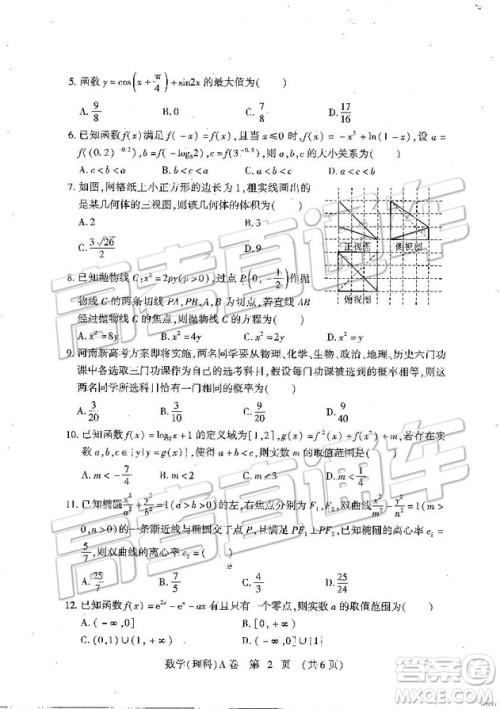 5. 函数 y=cos(x+π/4)+sin2x 的最大值为(    )
A. 9/8    B. 0    C. 7/8    D. 17/16
6. 已知函数 f(x) 满足 f(-x)=f(x), 且当 x≤0 时, f(x)=-x³+ln(1-x), 设 a=
f((0.2)^-0.2), b=f(-log₅2), c=f(3^-0.5), 则 a,b,c 的大小关系为(    )
A. c<b<a    B. c<a<b    C. b<c<a    D. a<b<c
7. 如图, 网格纸上小正方形的边长为1, 粗实线画出的
是某几何体的三视图, 则该几何体的体积为(    )
A. 2    B. 3
C.    D. 9
正视图 侧视图
俯视图
8. 已知抛物线 C: x²=2py(p>0), 过点 P(0, -1/2) 作抛物
线 C 的两条切线 PA, PB, A, B 为切点, 若直线 AB
经过抛物线 C 的焦点, 则抛物线 C 的方程为(    )
A. x²=8y    B. x²=4y    C. x²=2y    D. x²=y
9. 河南新高考方案即将实施, 两名同学要从物理、化学、生物、政治、地理、历史六门功
课中各选取三门功课作为自己的选考科目, 假设每门功课被选到的概率相等, 则这
两名同学所选科目恰有一门相同的概率为(    )
A. 3/20    B. 3/10    C. 9/20    D. 9/40
10. 已知函数 f(x)=log₂x+1 的定义域为[1,2], g(x)=f²(x)+f(x²)+m, 若存在实数
a,b,c∈{y|y=g(x)}, 使得 a+b<c, 则实数 m 的取值范围是(    )
A. m<-7/4    B. m<2    C. m<3    D. m<1/4
11. 已知椭圆 x²/a²+y²/b²=1(a>b>0) 的左、右焦点分别为 F₁, F₂, 双曲线
n>0) 的一条渐近线与椭圆交于点 P, 且满足 PF₁⊥PF₂, 已知椭圆的离心率 e₁=
5/7, 则双曲线的离心率 e₂=(    )
A. 25/7    B. 7/5    C.    D. 25/24
12. 已知函数 f(x)=e^2x-e^x-ax 只有一个零点, 则实数 a 的取值范围为(    )
A. (-∞,0]    B. [0,+∞)
C. (0,1)∪(1,+∞)    D. (-∞,0]∪{1}
数学(理科)A卷 第 2 页 (共6页)
高考直通车
高考直通车
作业帮